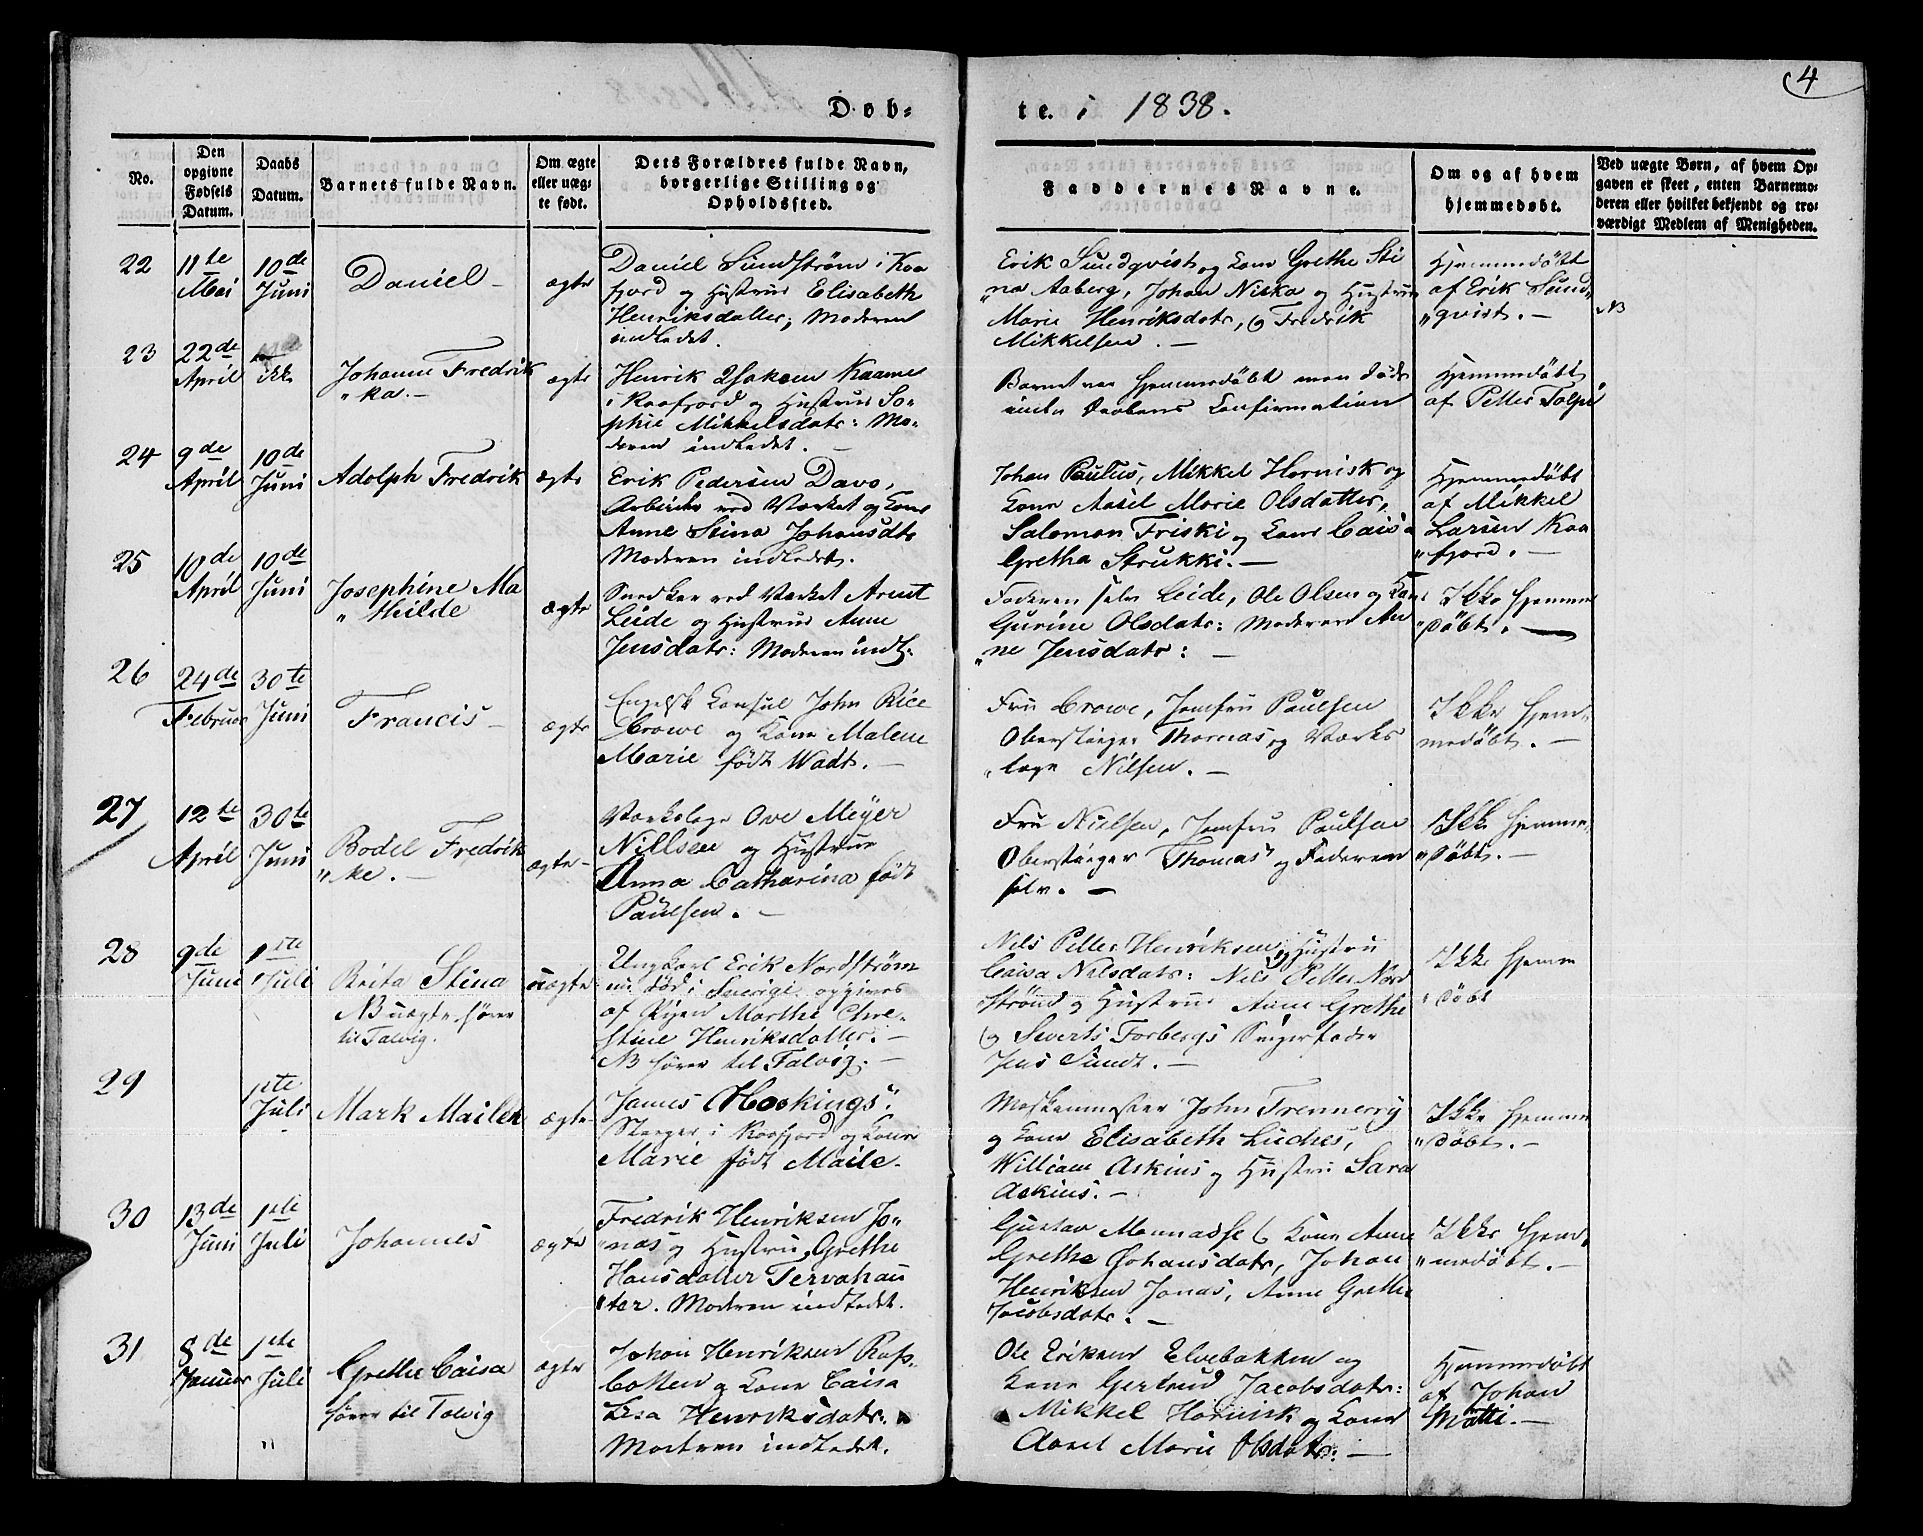 4
Døb-
te. i 1838.
No.
Den opgivne Fødsels Datum.
Daabs Datum.
Barnets fulde Navn.
Om ægte eller uægte født.
Dets Forældres fulde Navn, borgerlige Stilling og Opholdssted.
Faddernes Navne.
Om og af hvem hjemmedøbt.
Ved uægte Børn, af hvem Opgaven er skeet, enten Barnemoderen eller hvilket bekjendt og troværdigt Medlem af Menigheden.
22
11te Mai
10de Juni
Daniel
ægte
Daniel Sundstrøm i Kaa
fjord og Hustrue Elisabeth
Henriksdatter; Moderen
indledet.
Erik Sundqvist og Kone Grethe Sti
"na Aaberg, Johan Niska og Hustrue
Marie Henriksdatr, og Fredrik
Mikkelsen. —
Hjemmedøbt
af Erik Sund"
"qvist. —
NB
23
22de April
ikke
Johanne Fredrik
"ka. —
ægte
Henrik Isaksen Kaame
i Kaafjord og Hustrue So-
phie Mikkelsdatr: Mo-
deren indledet. —
Barnet var hjemmedøbt men døde
inden Daabens Confirmation
Hjemmedøbt
af Petter Tolpi
24
9de April
10de Juni
Adolph Fredrik
ægte
Erik Pedersen Davo,
Arbeider ved Værket og Kone
Anne Stina Johansdtr
Moderen indledet.
Johan Paulus, Mikkel Hornisk og
Kone Axsel Marie Olsdatter,
Salomon Friski og Kone Caisa
Gretha Strukki. —
Hjemmedøbt
af Mikkel
Larsen Kaa
"fjord. —
25
10de April
10de Juni
Josephine Ma
"thilde
ægte
Snedker ved Værket Arnt
Leide og Hustrue Anne
Jensdatr: Moderen indl.
Faderen selv Leide, Ole Olsen og Kone
Gurine Olsdatr: Moderen An
"ne Jensdatr: —
Ikke hjemme
"døbt. —
26
24de Februar
30te Juni
Francis —
ægte
Engelsk Consul John Rice
Crowe og Kone Malene
Marie født Wadt. —
Fru Crowe, Jomfru Paulsen
Oberstiger Thomas og Værks
"læge Nilsen. —
Ikke hjem-
medøbt. —
27
12te April
30te Juni
Bodel Fredrik
"ke. —
ægte -
Værkslæge Ove Meyer
Nillsen og Hustrue
Anna Catharina født
Paulsen. —
Fru Nielsen, Jomfru Paulsen
Oberstiger Thomas og Faderen
selv. —
Ikke hjemme-
"døbt. —
28
9de Juni
1ste Juli
Brita Stina
NB uægte hører
til Talvig.
uægte
Ungkarl Erik Nordstrøm
nu død i Sverige opgives
af Pigen Marthe Chre-
stine Henriksdatter. —
NB hører til Talvig. —
Nils Petter Henriksen og Hustru
Caisa Nilsdatr: Nils Petter Nord
strøm og Hustrue Anne Grethe
og Siverts Forbergs Svigerfader
Jens Sundt. —
Ikke hjemme
"døbt
29
1ste Juli
Mark Mailen
ægte -
James Hockings.
Steiger i Kaafjord og Kone
Marie født Maile.
Maskinmester John Trennerry
og Kone Elisabeth Luches,
William Askins og Hustru Sara
Askins. —
Ikke hjemme
"døbt. —
30
13de Juni
1ste Juli
Johannes
ægte
Fredrik Henriksen Jo-
"nas og Hustru Grethe
Hansdatter Tervahau
"ter. Moderen indledet.
Gustav Mannasse og Kone Anne
Grethe Johansdatr, Johan
Henriksen Jonas, Anne Grethe
Jacobsdatr. —
Ikke hjem-
"medøbt. —
31
8de Januar
1ste Juli
Grethe Caisa
hører til Talvig
"
ægte
Johan Henriksen Raf-
botten og Kone Caisa
Lisa Henriksdatr.
Moderen indledet.
Ole Eriksen Elvebakken og
Kone Gertrud Jacobsdatr:
Mikkel Hornisk og Kone
Axsel Marie Olsdatr: —
Hjemmedøbt
af Johan
Matti. —